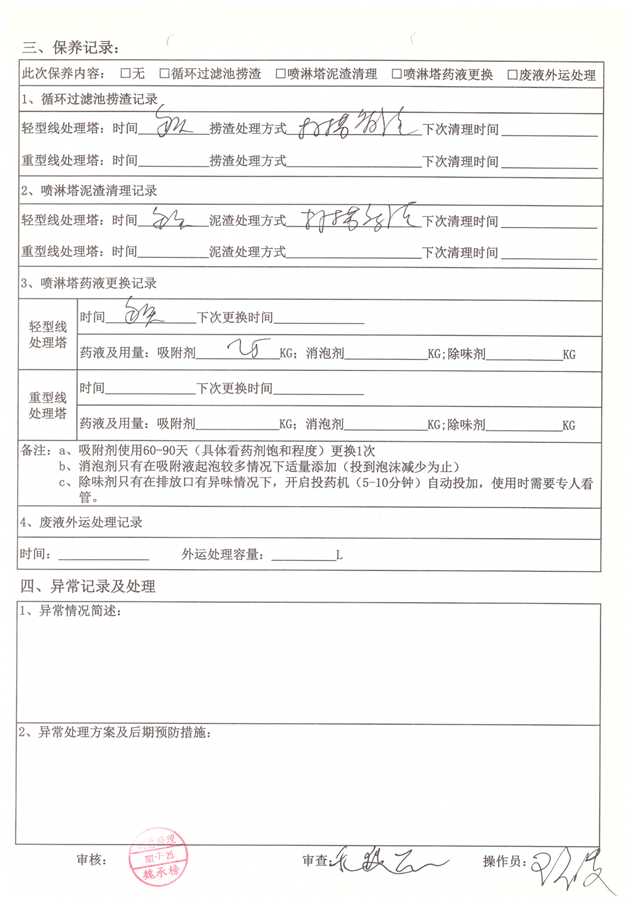 三、保养记录：
此次保养内容： □无 □循环过滤池捞渣 □喷淋塔泥渣清理 □喷淋塔药液更换 □废液外运处理
1、循环过滤池捞渣记录
轻型线处理塔：时间 捞渣处理方式 下次清理时间
重型线处理塔：时间 捞渣处理方式 下次清理时间
2、喷淋塔泥渣清理记录
轻型线处理塔：时间 泥渣处理方式 下次清理时间
重型线处理塔：时间 泥渣处理方式 下次清理时间
3、喷淋塔药液更换记录
轻型线
处理塔
时间 下次更换时间
药液及用量：吸附剂 25 KG；消泡剂 KG;除味剂 KG
重型线
处理塔
时间 下次更换时间
药液及用量：吸附剂 KG；消泡剂 KG;除味剂 KG
备注：a、吸附剂使用60-90天（具体看药剂饱和程度）更换1次
b、消泡剂只有在吸附液起泡较多情况下适量添加（投到泡沫减少为止）
c、除味剂只有在排放口有异味情况下，开启投药机（5-10分钟）自动投加，使用时需要专人看
管。
4、废液外运处理记录
时间： 外运处理容量： L
四、异常记录及处理
1、异常情况简述：
2、异常处理方案及后期预防措施：
审核： 审查： 操作员：
魏承榜